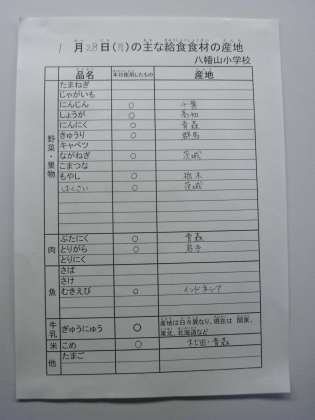 1月28日(月)の主な給食食材の産地
八幡山小学校
品名 本日使用したもの 産地
野菜・果物
たまねぎ
じゃがいも
にんじん ○ 千葉
しょうが ○ 高知
にんにく ○ 青森
きゅうり ○ 群馬
キャベツ
ながねぎ ○ 茨城
こまつな
もやし ○ 栃木
はくさい ○ 茨城
肉
ぶたにく ○ 青森
とりがら ○ 岩手
とりにく
魚
さば
さけ
むきえび ○ インドネシア
牛乳 ぎゅうにゅう ○ 産地は日々異なり、現在は 関東、東北、北海道など
米 こめ ○ 秋田・青森
他 たまご